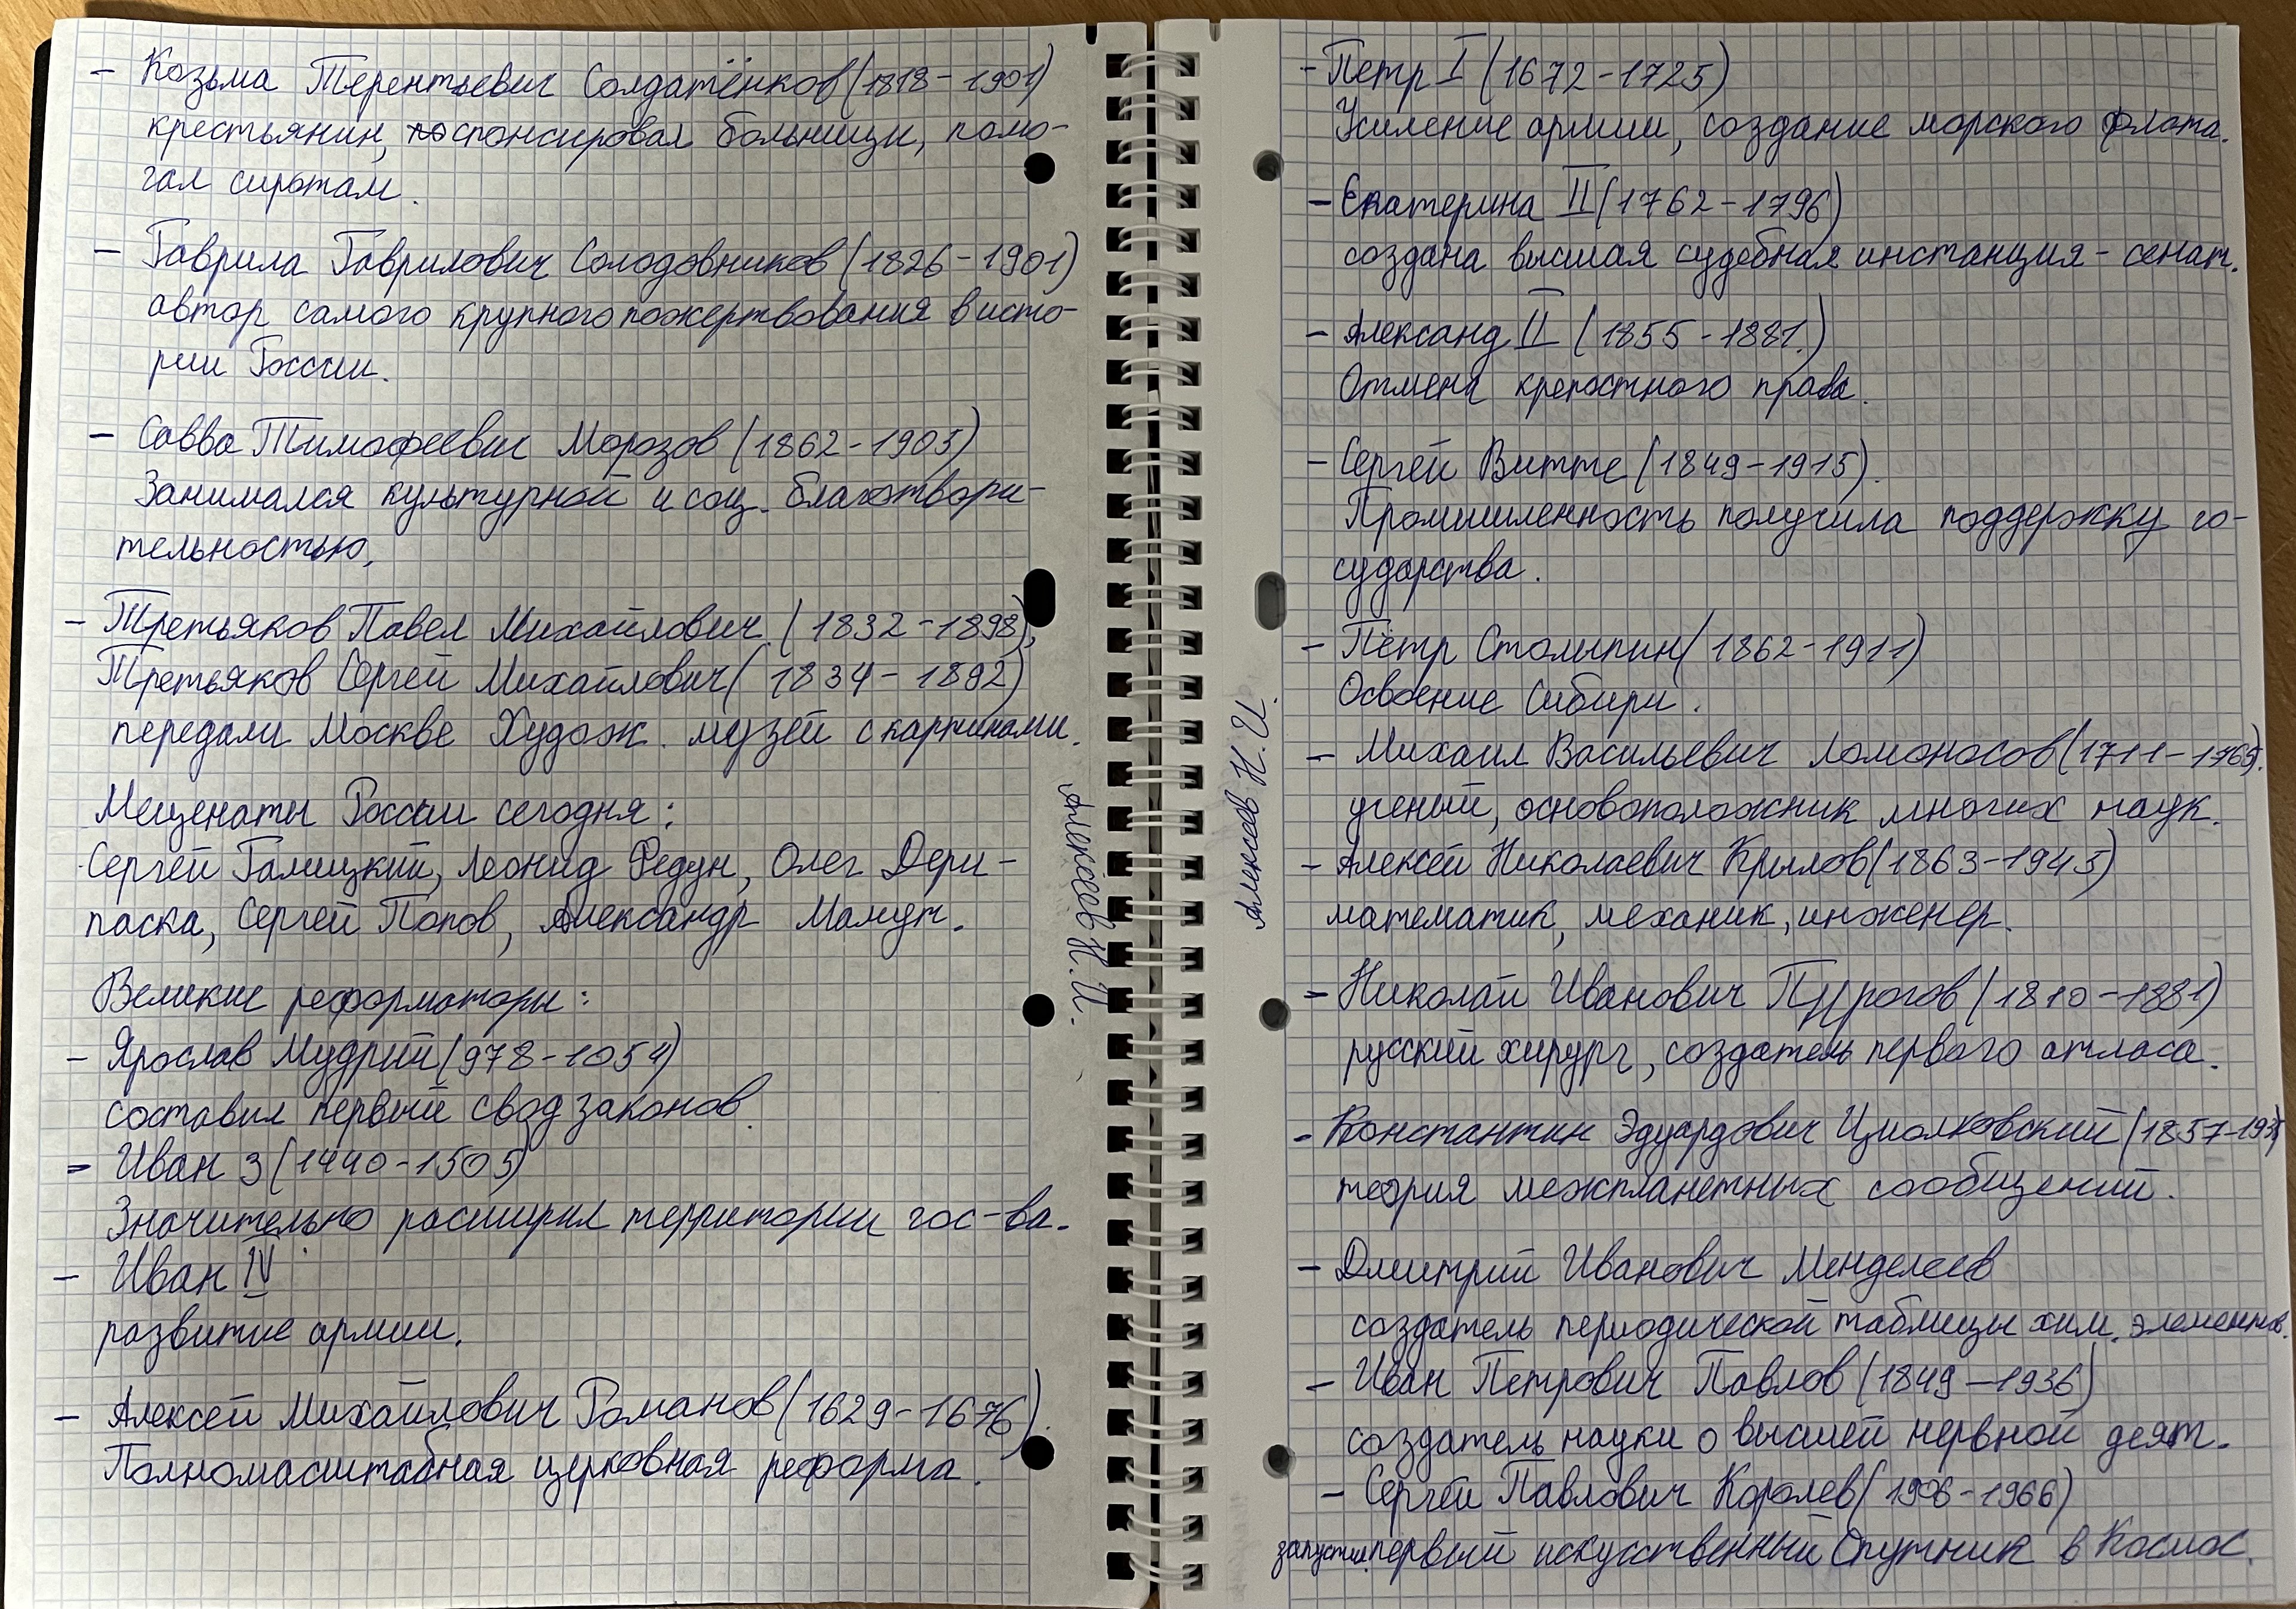 - Козьма Терентьевич Солдатёнков (1818-1901)
крестьянин, спонсировал больницы, помо-
гал сиротам.
- Гаврила Гаврилович Солодовников (1826-1901)
автор самого крупного пожертвования в исто-
рии России.
- Савва Тимофеевич Морозов (1862-1905)
Занимался культурной и соц. благотвори-
тельностью,
- Третьяков Павел Михайлович (1832-1898),
Третьяков Сергей Михайлович (1834-1892)
передали Москве Худож. музей с картинами.
Меценаты России сегодня:
Сергей Галицкий, Леонид Федун, Олег Дери-
паска, Сергей Попов, Александр Мамут.
Великие реформаторы:
- Ярослав Мудрый (978-1054)
составил первый свод законов.
- Иван 3 (1440-1505)
Значительно расширил территории гос-ва.
- Иван IV
развитие армии.
- Алексей Михайлович Романов (1629-1676).
Полномасштабная церковная реформа.
Алексеев Н.И.
- Петр I (1672-1725)
Усиление армии, создание морского флота.
- Екатерина II (1762-1796)
создана высшая судебная инстанция - сенат.
- Александ II (1855-1881.)
Отмена крепостного права.
- Сергей Витте (1849-1915).
Промышленность получила поддержку го-
сударства.
- Пётр Столыпин (1862-1911)
Освоение Сибири.
- Михаил Васильевич Ломоносов (1711-1765).
ученый, основоположник многих наук.
- Алексей Николаевич Крылов (1863-1945)
математик, механик, инженер.
- Николай Иванович Пирогов (1810-1881)
русский хирург, создатель первого атласа.
- Константин Эдуардович Циолковский (1857-1935)
теория межпланетных сообщений.
- Дмитрий Иванович Менделеев
создатель периодической таблицы хим. элементов.
- Иван Петрович Павлов (1849-1936)
создатель науки о высшей нервной деят.
- Сергей Павлович Королев (1906-1966)
запустил первый искусственный Спутник в Космос.
Алексеев Н.И.